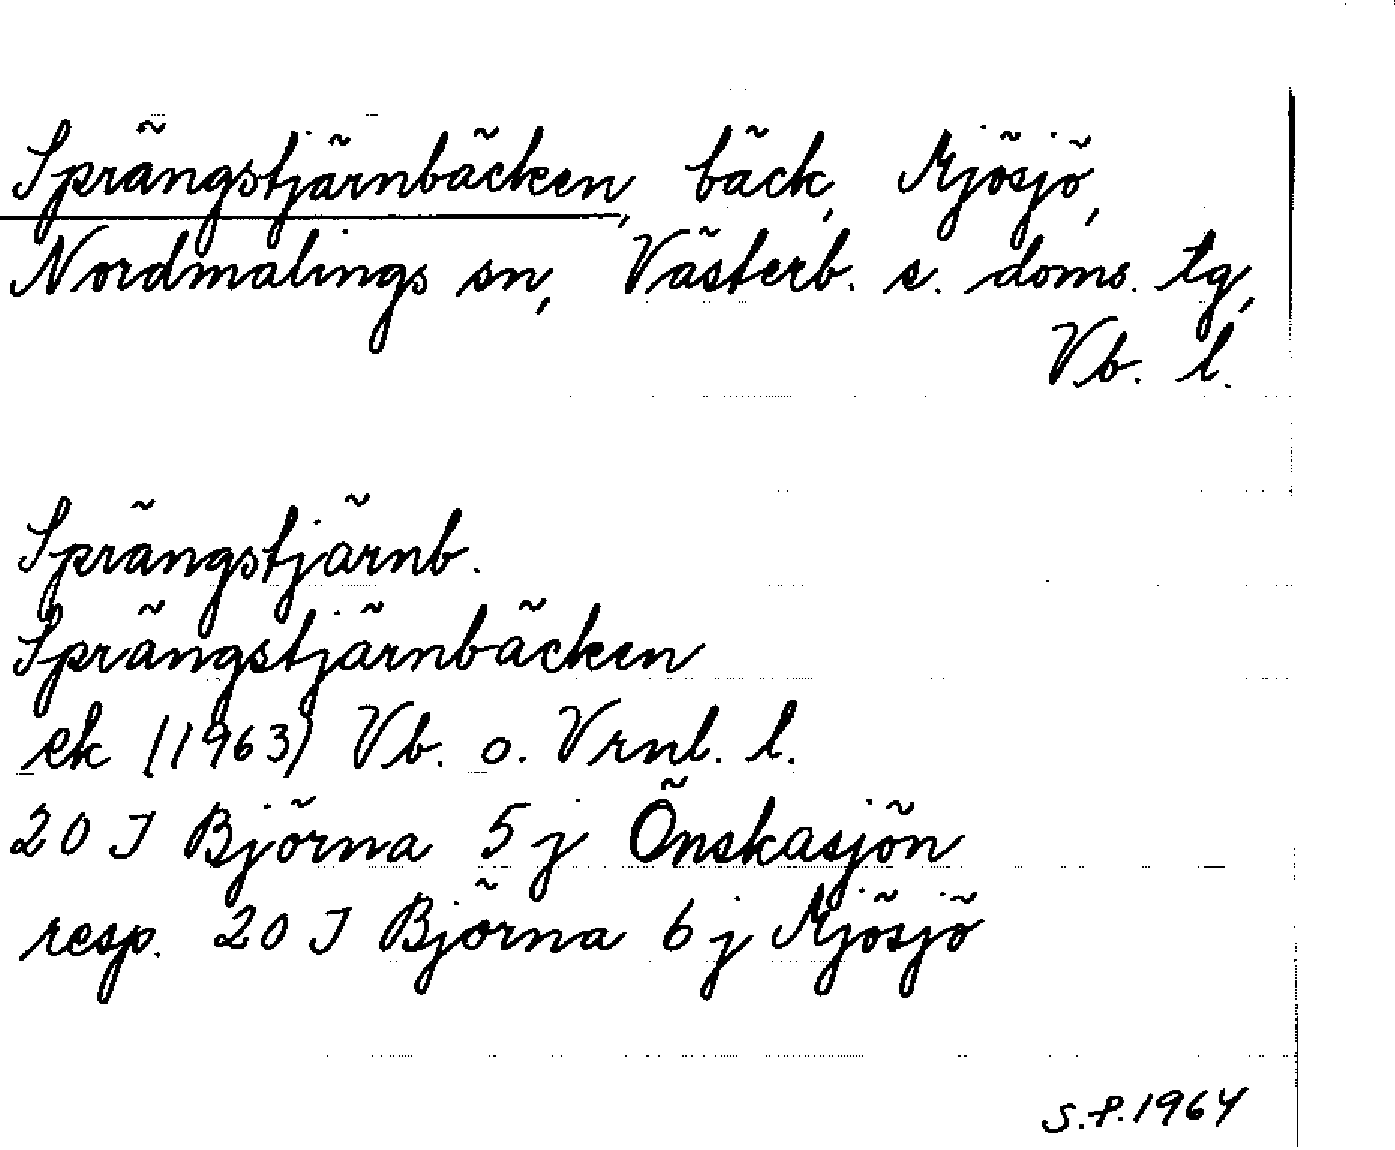 Sprängstjärnbäcken, bäck, Mjösjö,
Nordmalings sn, Västerb. s. doms. tg,
Vb. l.
Sprängstjärnb.
Sprängstjärnbäcken
ek (1963) Vb. o. Vrnl. l.
20 J Björna 5 j Önskasjön
resp. 20 J Björna 6 j Mjösjö
S.P. 1964